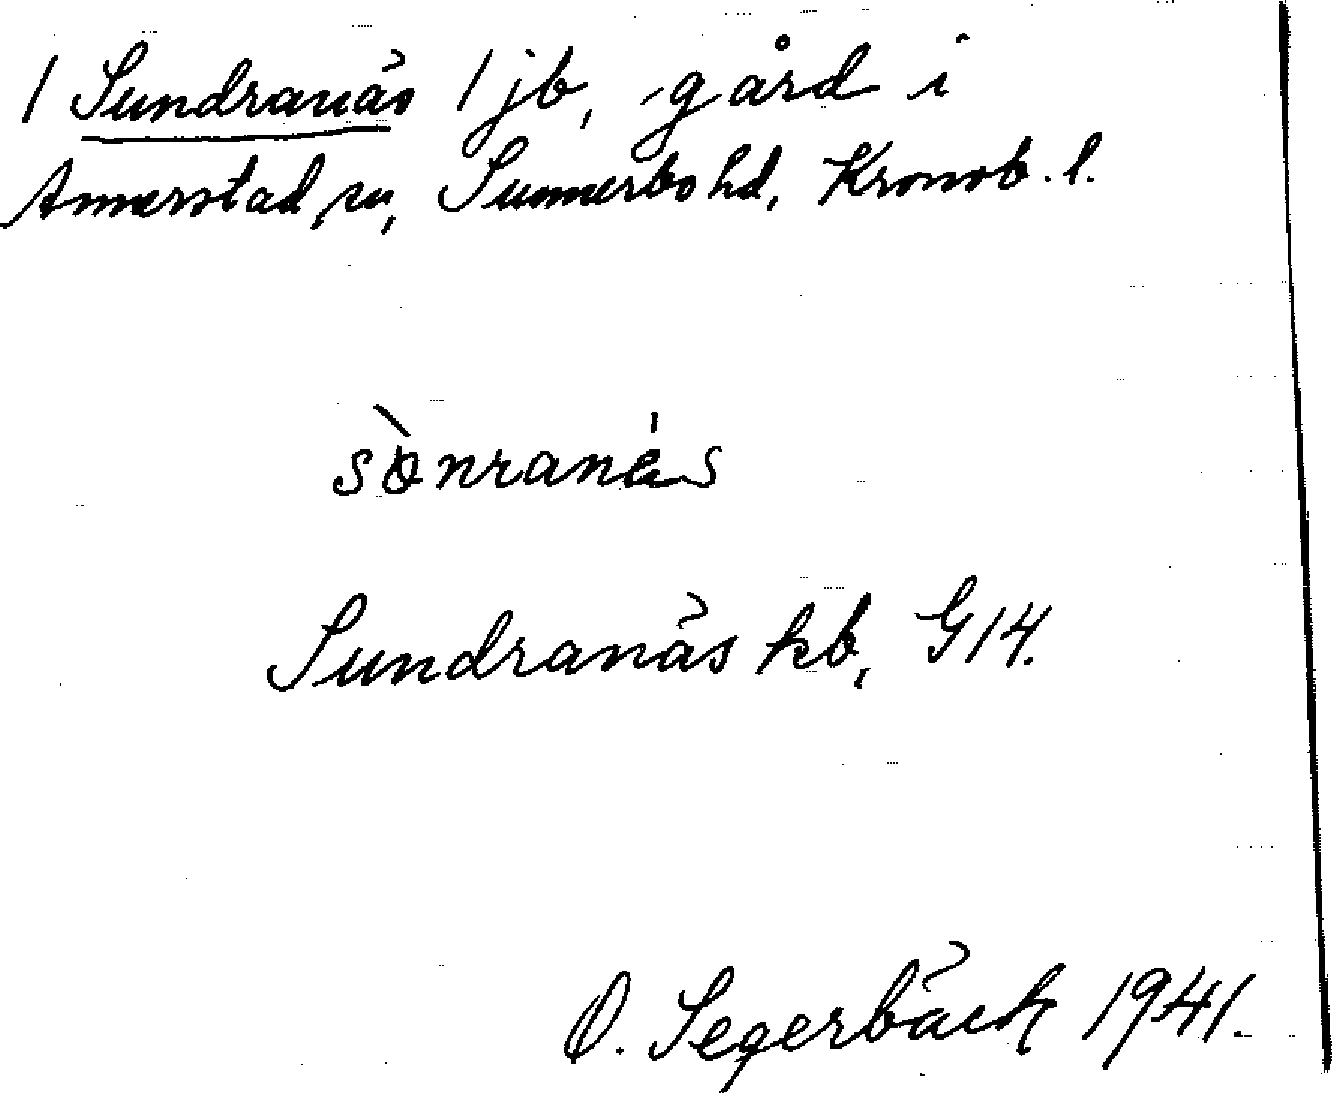 1 Sundranäs 1 jb, gård i
Annerstad sn, Sunnerbo hd, Kronob. l.
sònranás
Sundranäs kb, G14.
O. Segerbäck 1941.